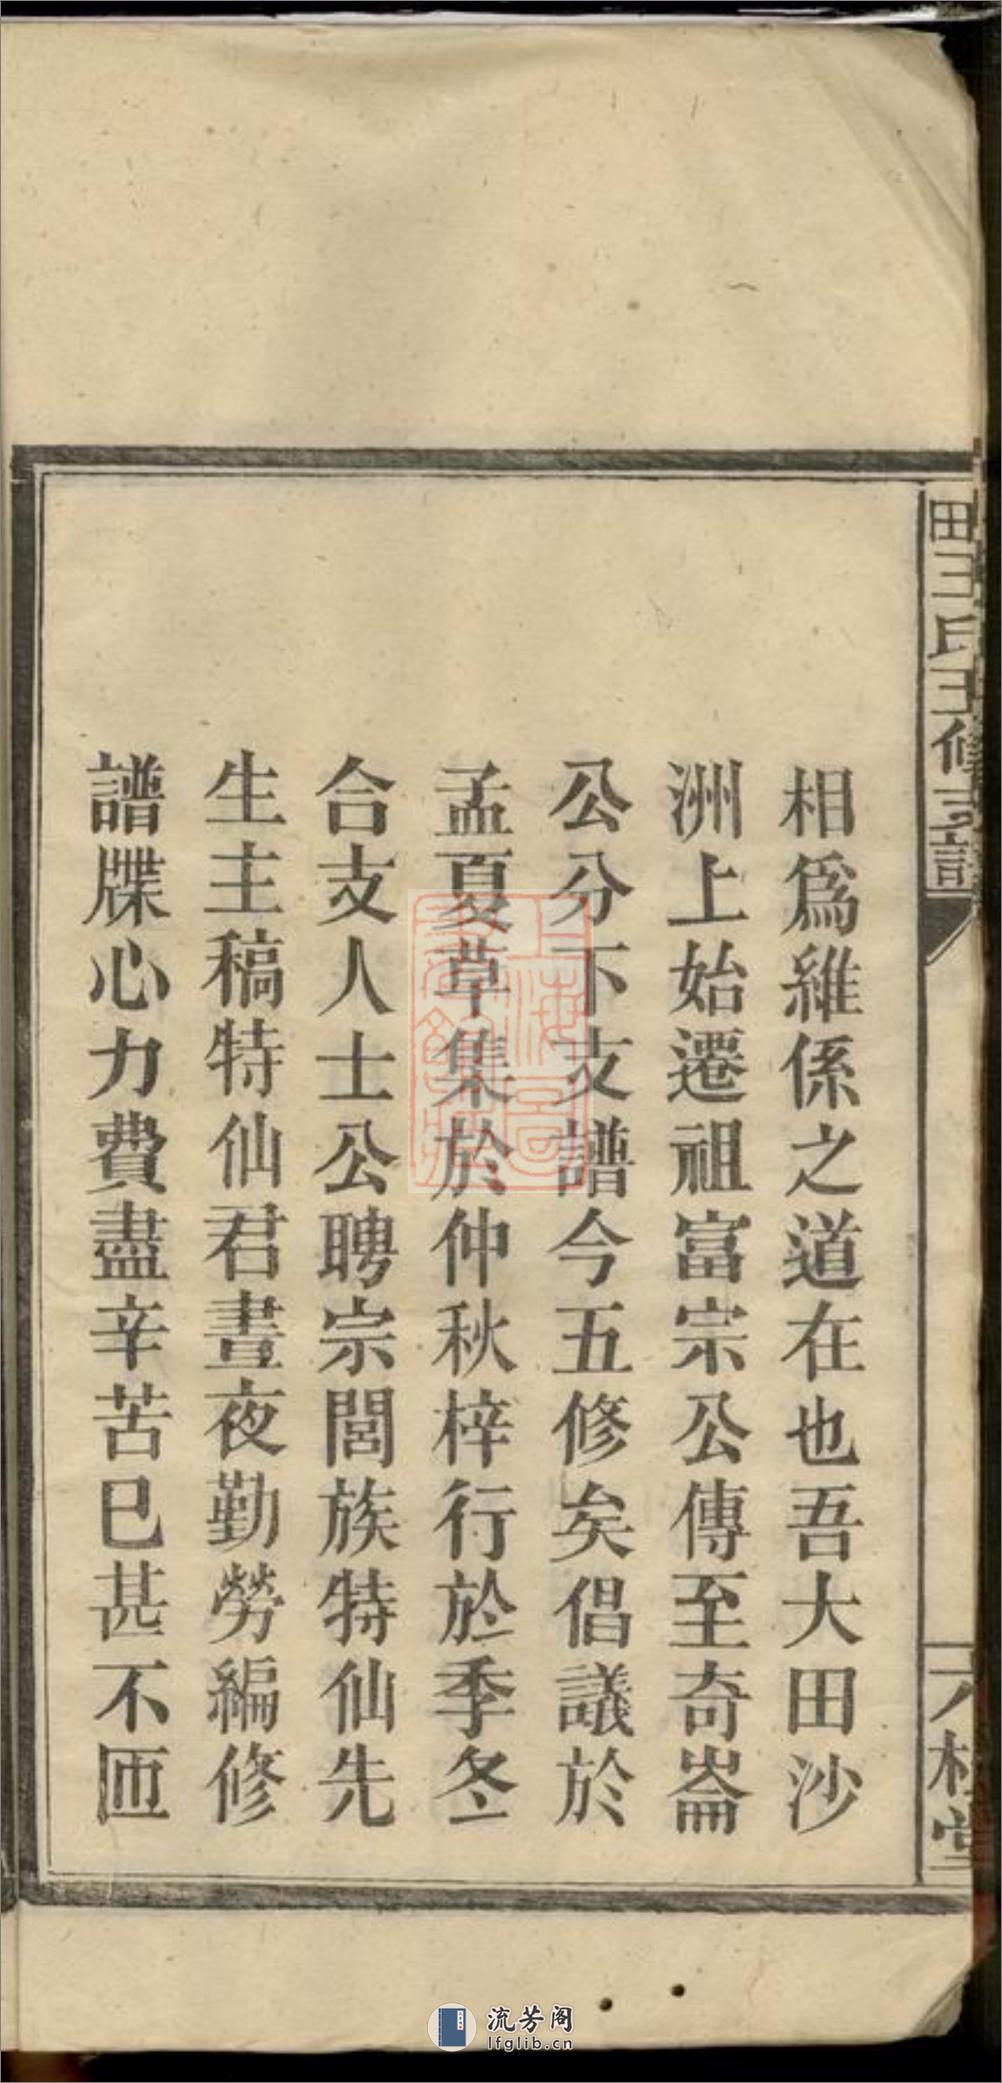 田王氏五修支譜
六桂堂
相爲維係之道在也吾大田沙
洲上始遷祖富宗公傳至奇崙
公分下支譜今五修矣倡議於
孟夏草集於仲秋梓行於季冬
合支人士公聘宗閭族特仙先
生主稿特仙君晝夜勤勞編修
譜牒心力費盡辛苦已甚不匝
上海圖書館藏
流芳阁
lfglib.cn